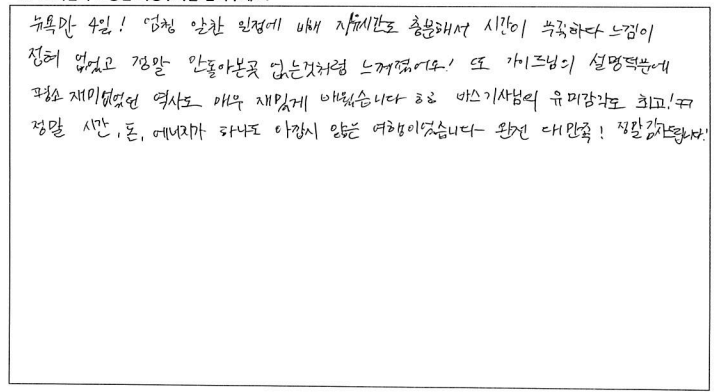 뉴욕만 4일! 엄청 알찬 일정에 비해 자유시간도 충분해서 시간이 부족하다 느낌이
전혀 없었고 정말 안돌아본곳 없는것처럼 느껴졌어요! 또 가이드님의 설명덕분에
평소 재미없었던 역사도 매우 재밌게 배웠습니다 ㅎㅎ 버스기사님의 유머감각도 최고! ㅋㅋ
정말 시간, 돈, 에너지가 하나도 아깝지 않은 여행이었습니다~ 완전 대만족! 정말감사드립니다!